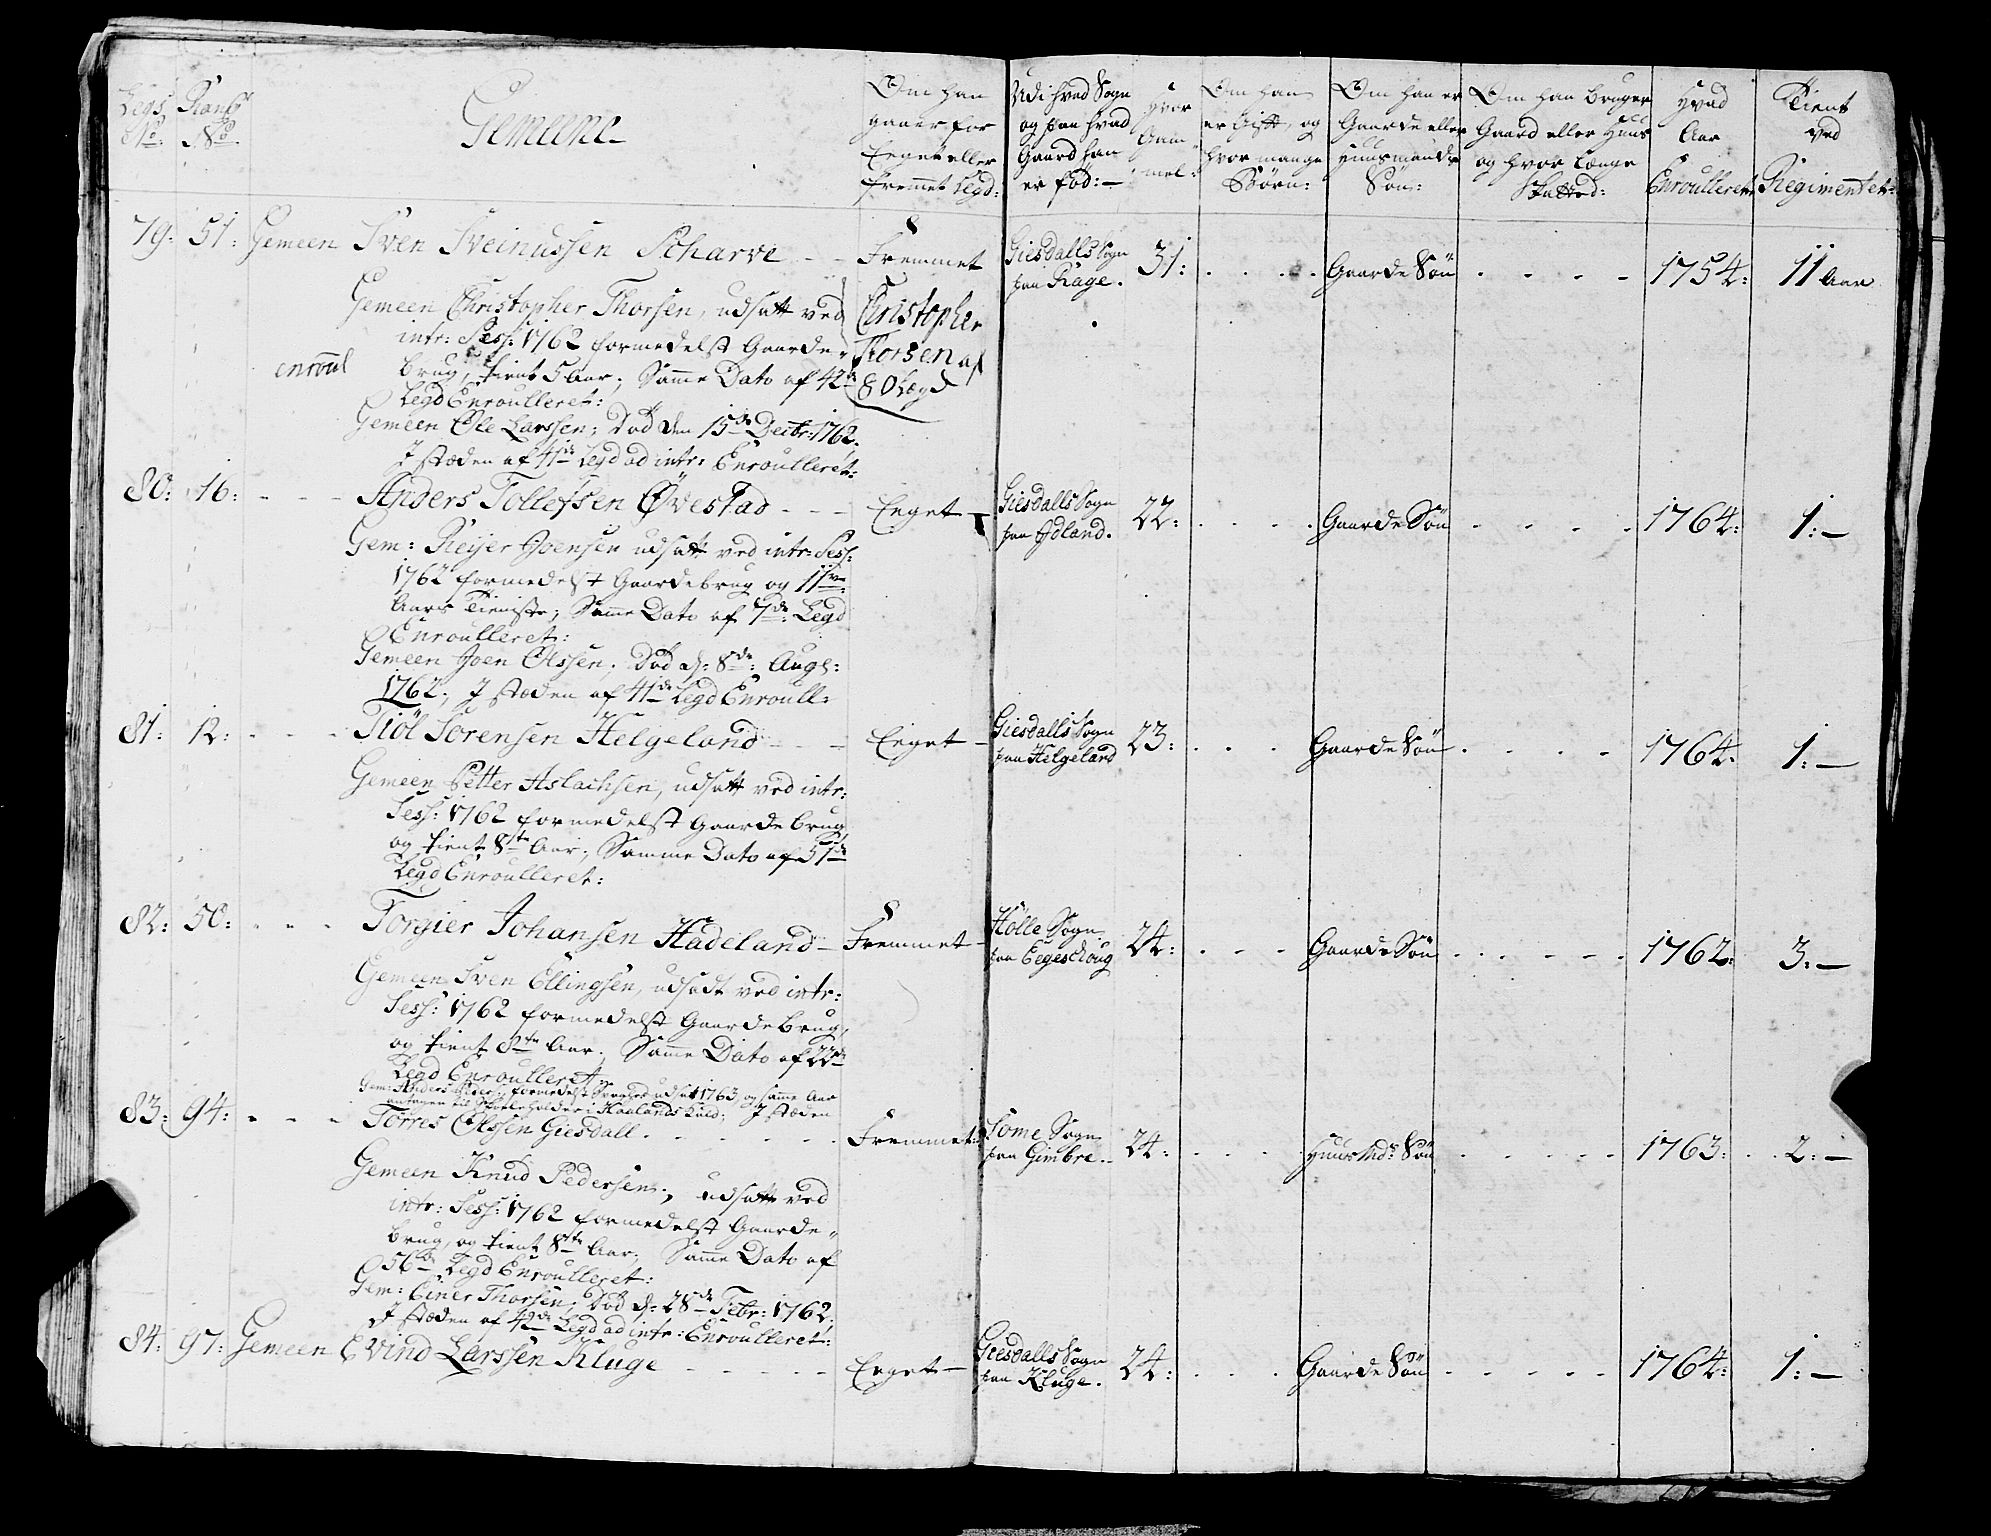 Legs No:
Rangs No:
Gemeene
Om han gaaer for Eeget eller fremmet Legd:
Udi hvad Sogn og paa hvad Gaard han er fød:
Hvor Gammel:
Om han er Gift, og hvor mange Børn:
Om han er Gaarde eller Huusmands Søn:
Om han bruger Gaard eller Huus og hvor længe
Hvad Aar Enroulleret
Tient ved Regimentet:
79: 51: Gemeen Sven Sveinussen Scharve - - Fremmet Giesdalls Sogn paa Rage. 31: . . . . Gaarde Søn - - - - 1754: 11 Aar
Gemeen Christopher Thorsen, udsatt ved
intr: Sess: 1762 formedelst Gaarde-
brug, tient 5 Aar; Samme Dato af 42de
Legd Enroulleret:
enroul
Christopher
Torsen af
80 Legd
Gemeen Ole Larssen; Død den 15de Decbr: 1762.
I stæden af 41de Legd ad intr: Enroulleret:
80: 16: - - - Anders Tollefsen Øvestad - - - Eeget - Giesdalls Sogn paa Idland. 22: . . . . Gaarde Søn - - - - 1764: 1: -
Gem: Reijer Joensen udsatt ved intr: Sess:
1762 formedelst Gaardebrug og 11ve
Aars Tieniste; Samme Dato af 7de: Legd
Enroulleret:
Gemeen Joen Olssen; Død d: 8de: Aug:
1762; I stæden af 41de Legd Enroull:
81: 12: - - - Tiøl Sørensen Helgeland - - - Eeget - Giesdalls Sogn paa Helgeland 23: . . . Gaarde Søn . - - - 1764. 1: -
Gemeen Petter Aslachsen, udsatt ved intr:
Sess: 1762 formedelst Gaardebrug
og tient 8te Aar; Samme Dato af 51de
Legd Enroulleret:
82: 50: - - - Torgier Johansen Hadeland - Fremmet - Hølle Sogn paa Eegeschoug 24: . - - Gaarde Søn . . - - - - 1762: 3: -
Gemeen Sven Ellingsen, udsadt ved intr:
Sess: 1762 formedelst Gaardebrug,
og tient 8te Aar; Samme Dato af 22de
Legd Enroulleret:
Gem: Anders formedelst Svaghed udsat 1763, og samme Aar
antagen til Skoleholder i Haalands I stæden
83: 94: - - - Torres Olssen Giesdall . - - - - - Fremmet: Some Sogn paa Gimbre. 24: . - - - Huusmds Søn . - - - - 1763: . . 2: -
Gemeen Knud Pedersen; udsatt ved
intr: Sess: 1762 formedelst Gaarde-
brug, og tient 8te Aar; Samme Dato af
56de Legd Enroulleret:
Gem: Einer Thorsen; Død d: 28de Febr: 1762;
I stæden af 42de Legd ad intr: Enroulleret:
84: 97: Gemeen Evind Larssen Kluge - - - - - Eeget - Giesdalls Sogn paa Kluge. 24: . . . Gaarde Søn - - - - - 1764: 1: -